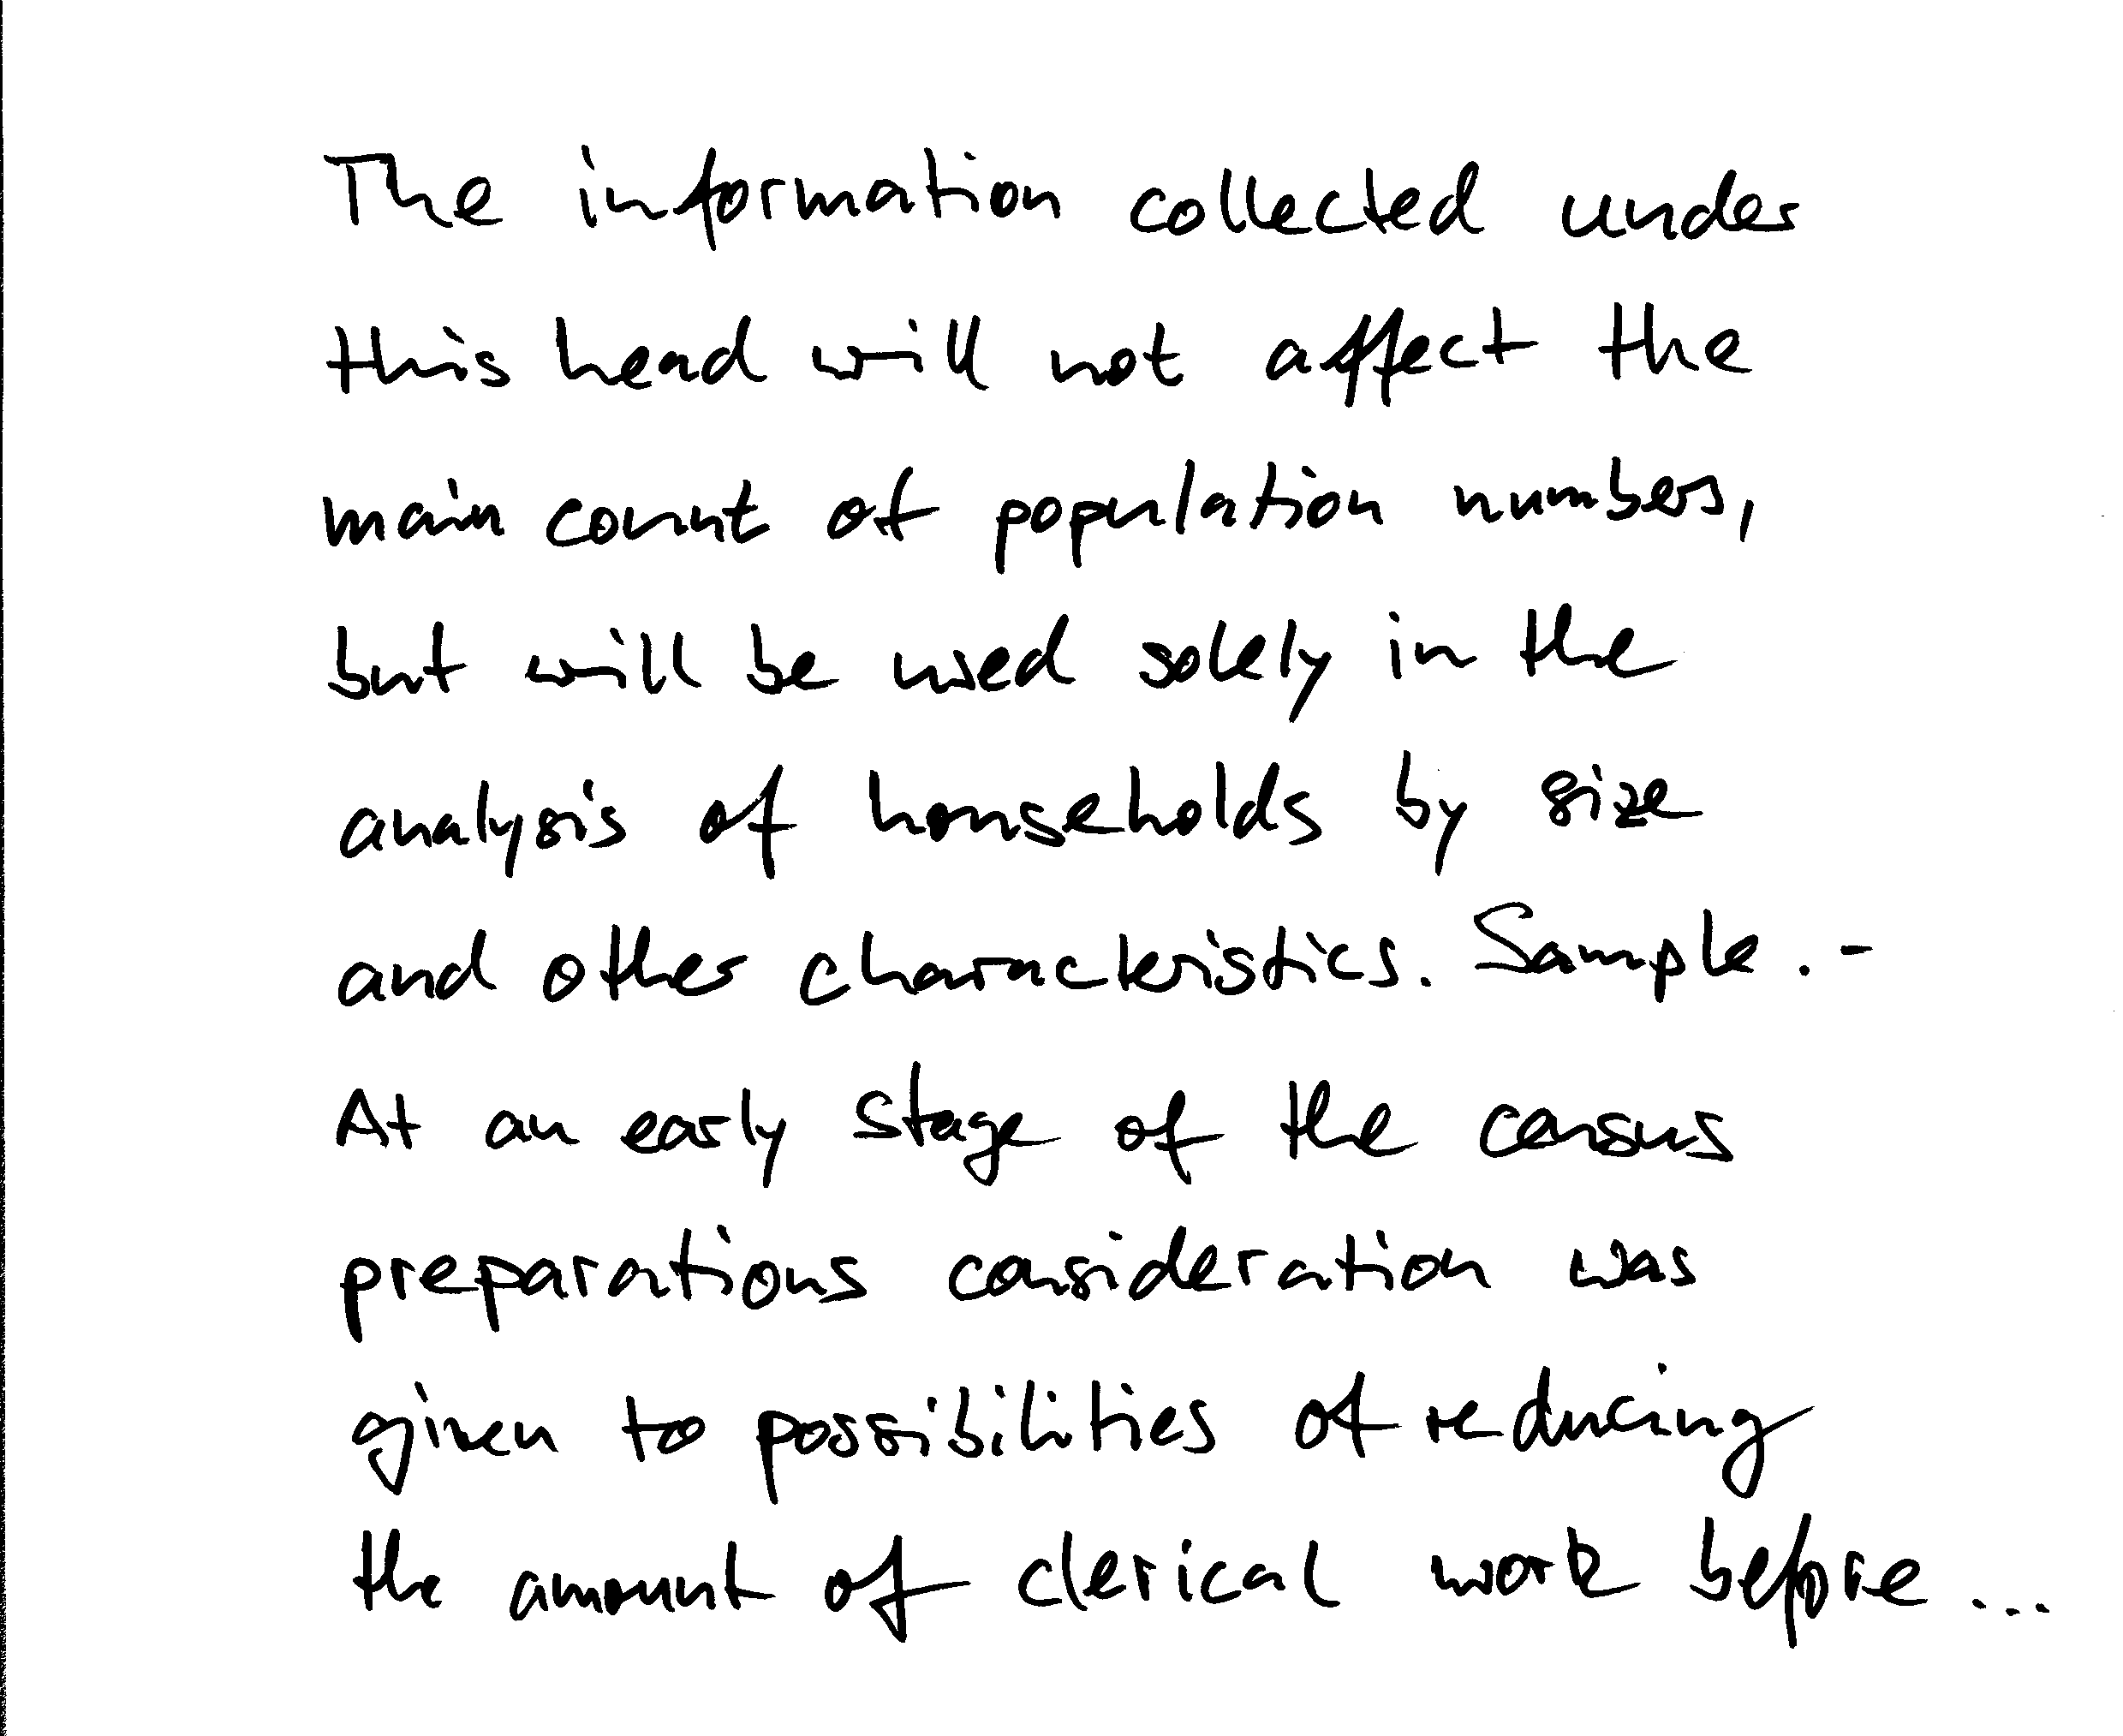 The information collected under
this head will not affect the
main count of population numbers,
but will be used solely in the
analysis of households by size
and other characteristics. Sample. -
At an early stage of the census
preparations consideration was
given to possibilities of reducing
the amount of clerical work before...